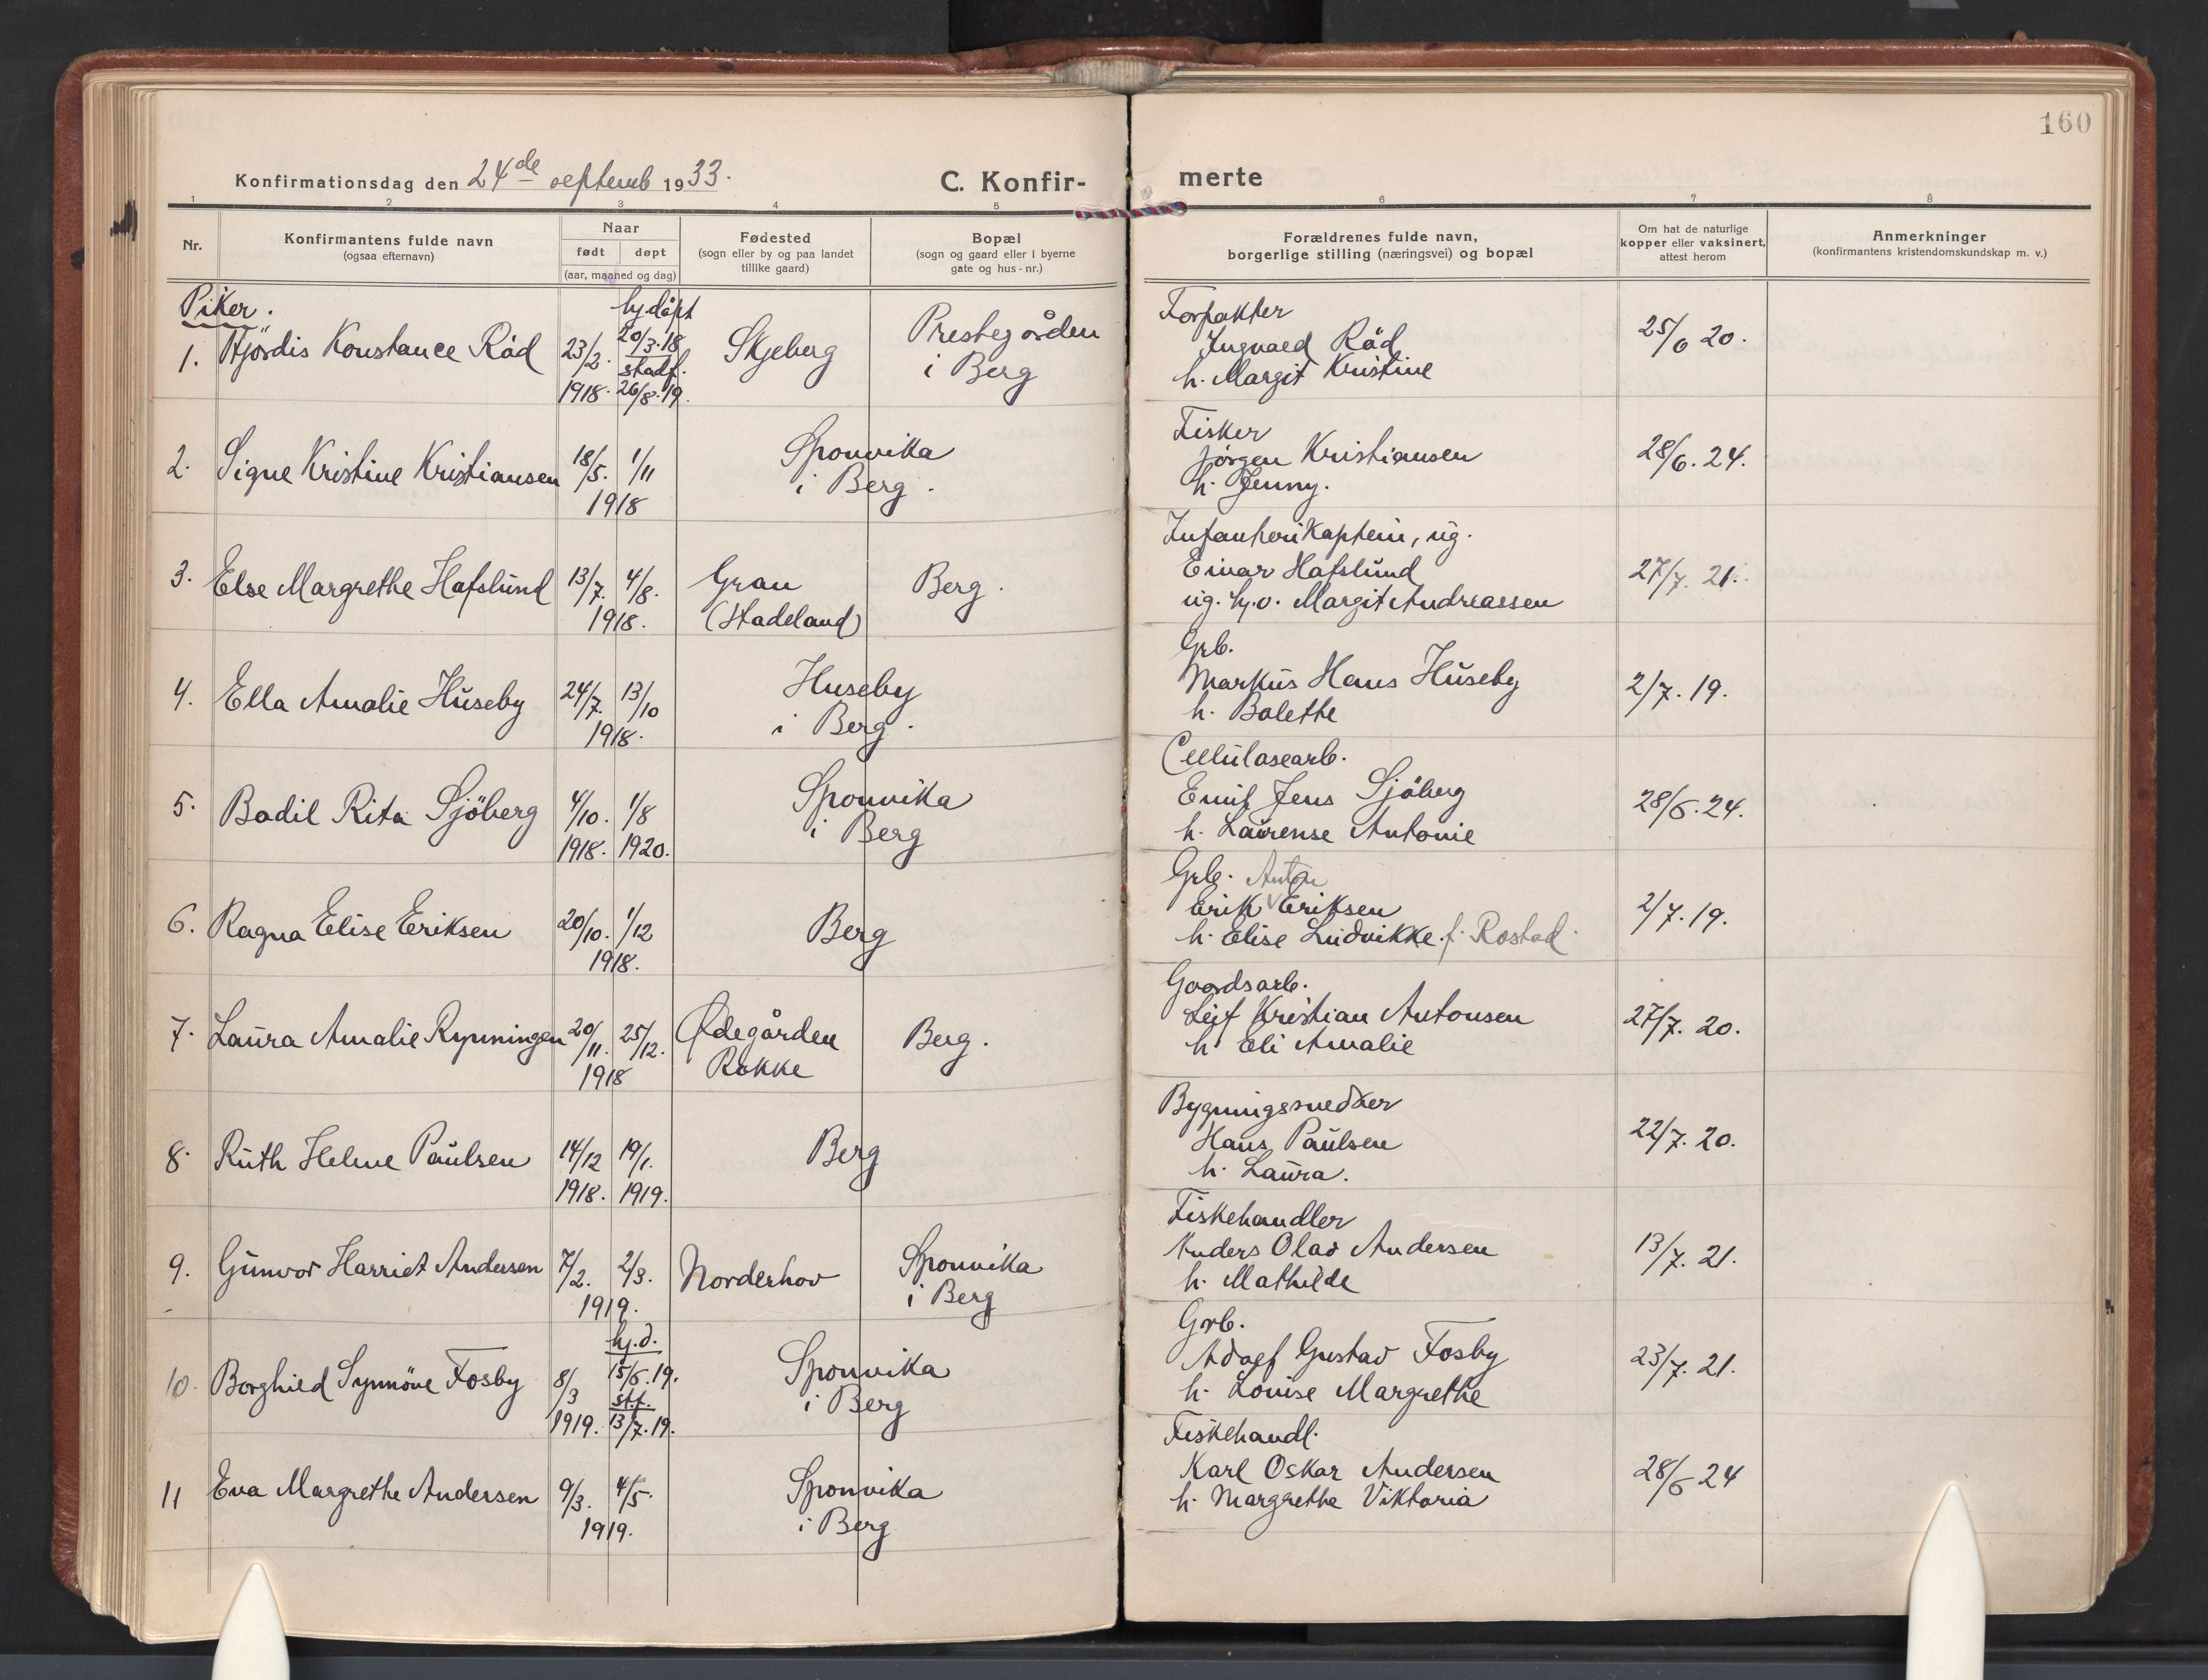 160
Konfirmationsdag den 24de septemb 1933.
C. Konfir-
merte
1 2 3 4 5 6 7 8
Nr.
Konfirmantens fulde navn
(ogsaa efternavn)
Naar
født døpt
(aar, maaned og dag)
Fødested
(sogn eller by og paa landet
tillike gaard)
Bopæl
(sogn og gaard eller i byerne
gate og hus-nr.)
Forældrenes fulde navn,
borgerlige stilling (næringsvei) og bopæl
Om hat de naturlige
kopper eller vaksinert,
attest herom
Anmerkninger
(konfirmantens kristendomskundskap m. v.)
Piker.
1. Hjördis Konstance Råd
23/2. 1918.
hj.döpt
20/3.18
stadf.
26/8.19.
Skjeberg
Prestegården
i Berg
Forpakter
Ingvald Råd
h. Margit Kristine
25/6 20.
2. Signe Kristine Kristiansen
18/5. 1/11
1918
Sponvika
i Berg.
Fisker
Jörgen Kristiansen
h. Jenny.
28/6. 24.
3. Else Margrethe Hafslund
13/7. 4/8.
1918.
Gran
(Hadeland)
Berg.
Infanterikaptein, ug.
Einar Hafslund
ug. hj.v. Margit Andreassen
27/7. 21.
4. Ella Amalie Huseby
24/7. 13/10
1918.
Huseby
i Berg.
Grb.
Markus Hans Huseby
h. Bolethe
2/7. 19.
5. Bodil Rita Sjöberg
4/10. 1/8
1918. 1920.
Sponvika
i Berg
Cellulosearb.
Emil Jens Sjöberg
h. Laurense Antonie
28/6. 24.
6. Ragna Elise Eriksen
20/10. 1/12
1918.
Berg
Grb. Anton
Erik Eriksen
h. Elise Ludvikke f. Rostad.
2/7. 19.
7. Laura Amalie Rynningen
20/11. 25/12.
1918
Ødegården
Rokke
Berg.
Goardsarb.
Leif Kristian Antonsen
h. Eli Amalie
27/7. 20.
8. Ruth Helene Paulsen
14/12 19/1.
1918. 1919.
Berg
Bygningssnedker
Hans Paulsen
h. Laura.
22/7. 20.
9. Gunvor Harriet Andersen
7/2. 2/3.
1919.
Norderhov
Sponvika
i Berg
Fiskehandler
Anders Olav Andersen
h. Mathilde
13/7. 21.
10. Borghild Synnöve Fosby
8/3 1919.
hj.d.
15/6.19.
stf.
13/7.19.
Sponvika
i Berg
Grb.
Adolf Gustav Fosby
h. Louise Margrethe
23/7. 21.
11 Eva Margrethe Andersen
9/3. 4/5.
1919.
Sponvika
i Berg
Fiskehandl.
Karl Oskar Andersen
h. Margrethe Viktoria
28/6 24